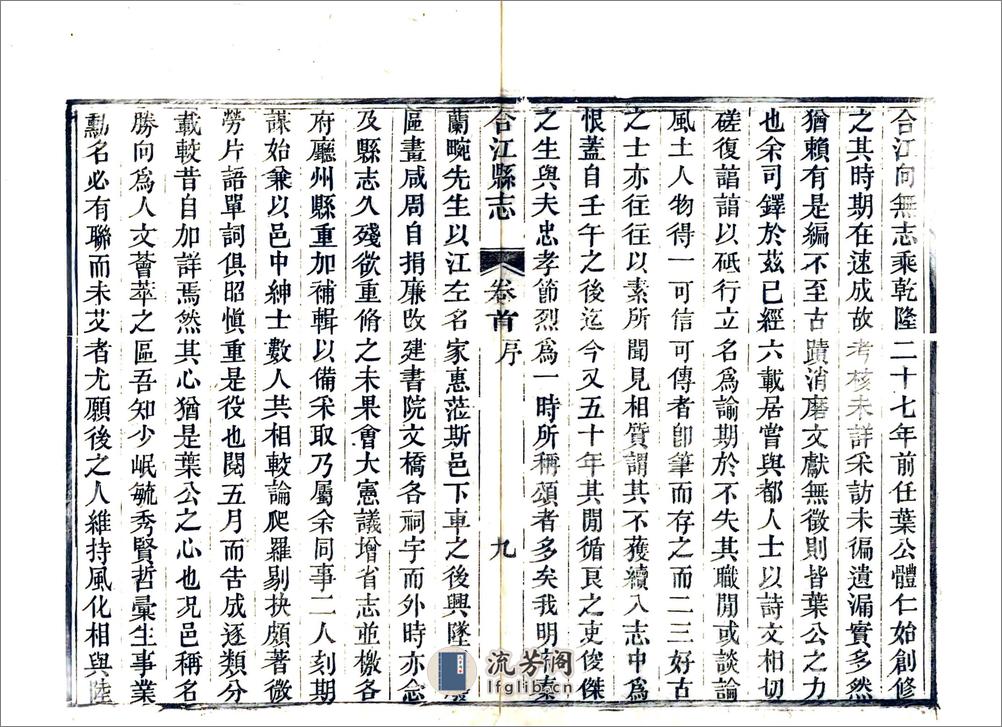 合江向無志乘乾隆二十七年前任葉公體仁始創修
之其時期在速成故考核未詳采訪未徧遺漏實多然
猶賴有是編不至古蹟消磨文獻無徵則皆葉公之力
也余司鐸於茲已經六載居嘗與都人士以詩文相切
磋復以砥行立名為諭期於不失其職閒或談論
風土人物得一可信可傳者卽筆而存之而二三好古
之士亦往往以素所聞見相質謂其不獲續入志中為
恨蓋自壬午之後迄今又五十年其閒循良之吏俊傑
之生與夫忠孝節烈為一時所稱頌者多矣我明秦
合江縣志 卷首 序 九
蘭畹先生以江左名家惠蒞斯邑下車之後興墜
區畫咸周自捐廉改建書院文橋各祠宇而外時亦念
及縣志久殘欲重脩之未果會大憲議增省志並檄各
府廳州縣重加補輯以備采取乃屬余同事二人刻期
謀始兼以邑中紳士數人共相較論爬羅剔抉頗著微
勞片語單詞俱昭慎重是役也閱五月而告成逐類分
載較昔自加詳焉然其心猶是葉公之心也況邑稱名
勝向為人文薈萃之區吾知少岷毓秀賢哲彙生事業
勳名必有聯而未艾者尤願後之人維持風化相與陸
流芳阁
lfglib.cn